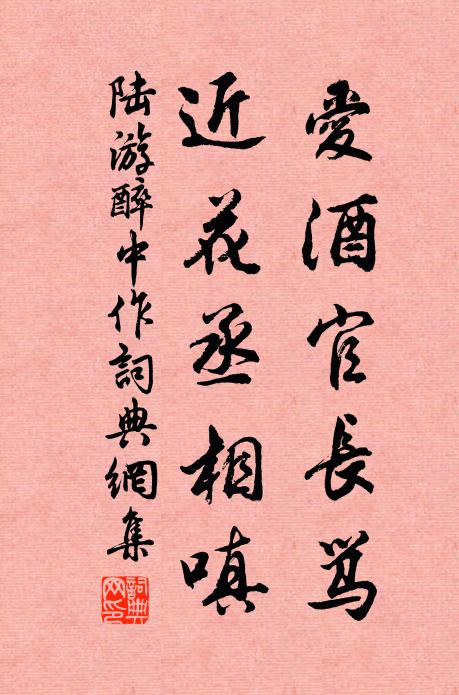 愛酒官長罵
近花丞相嗔
陸游醉中作詞典網集
詞典網印